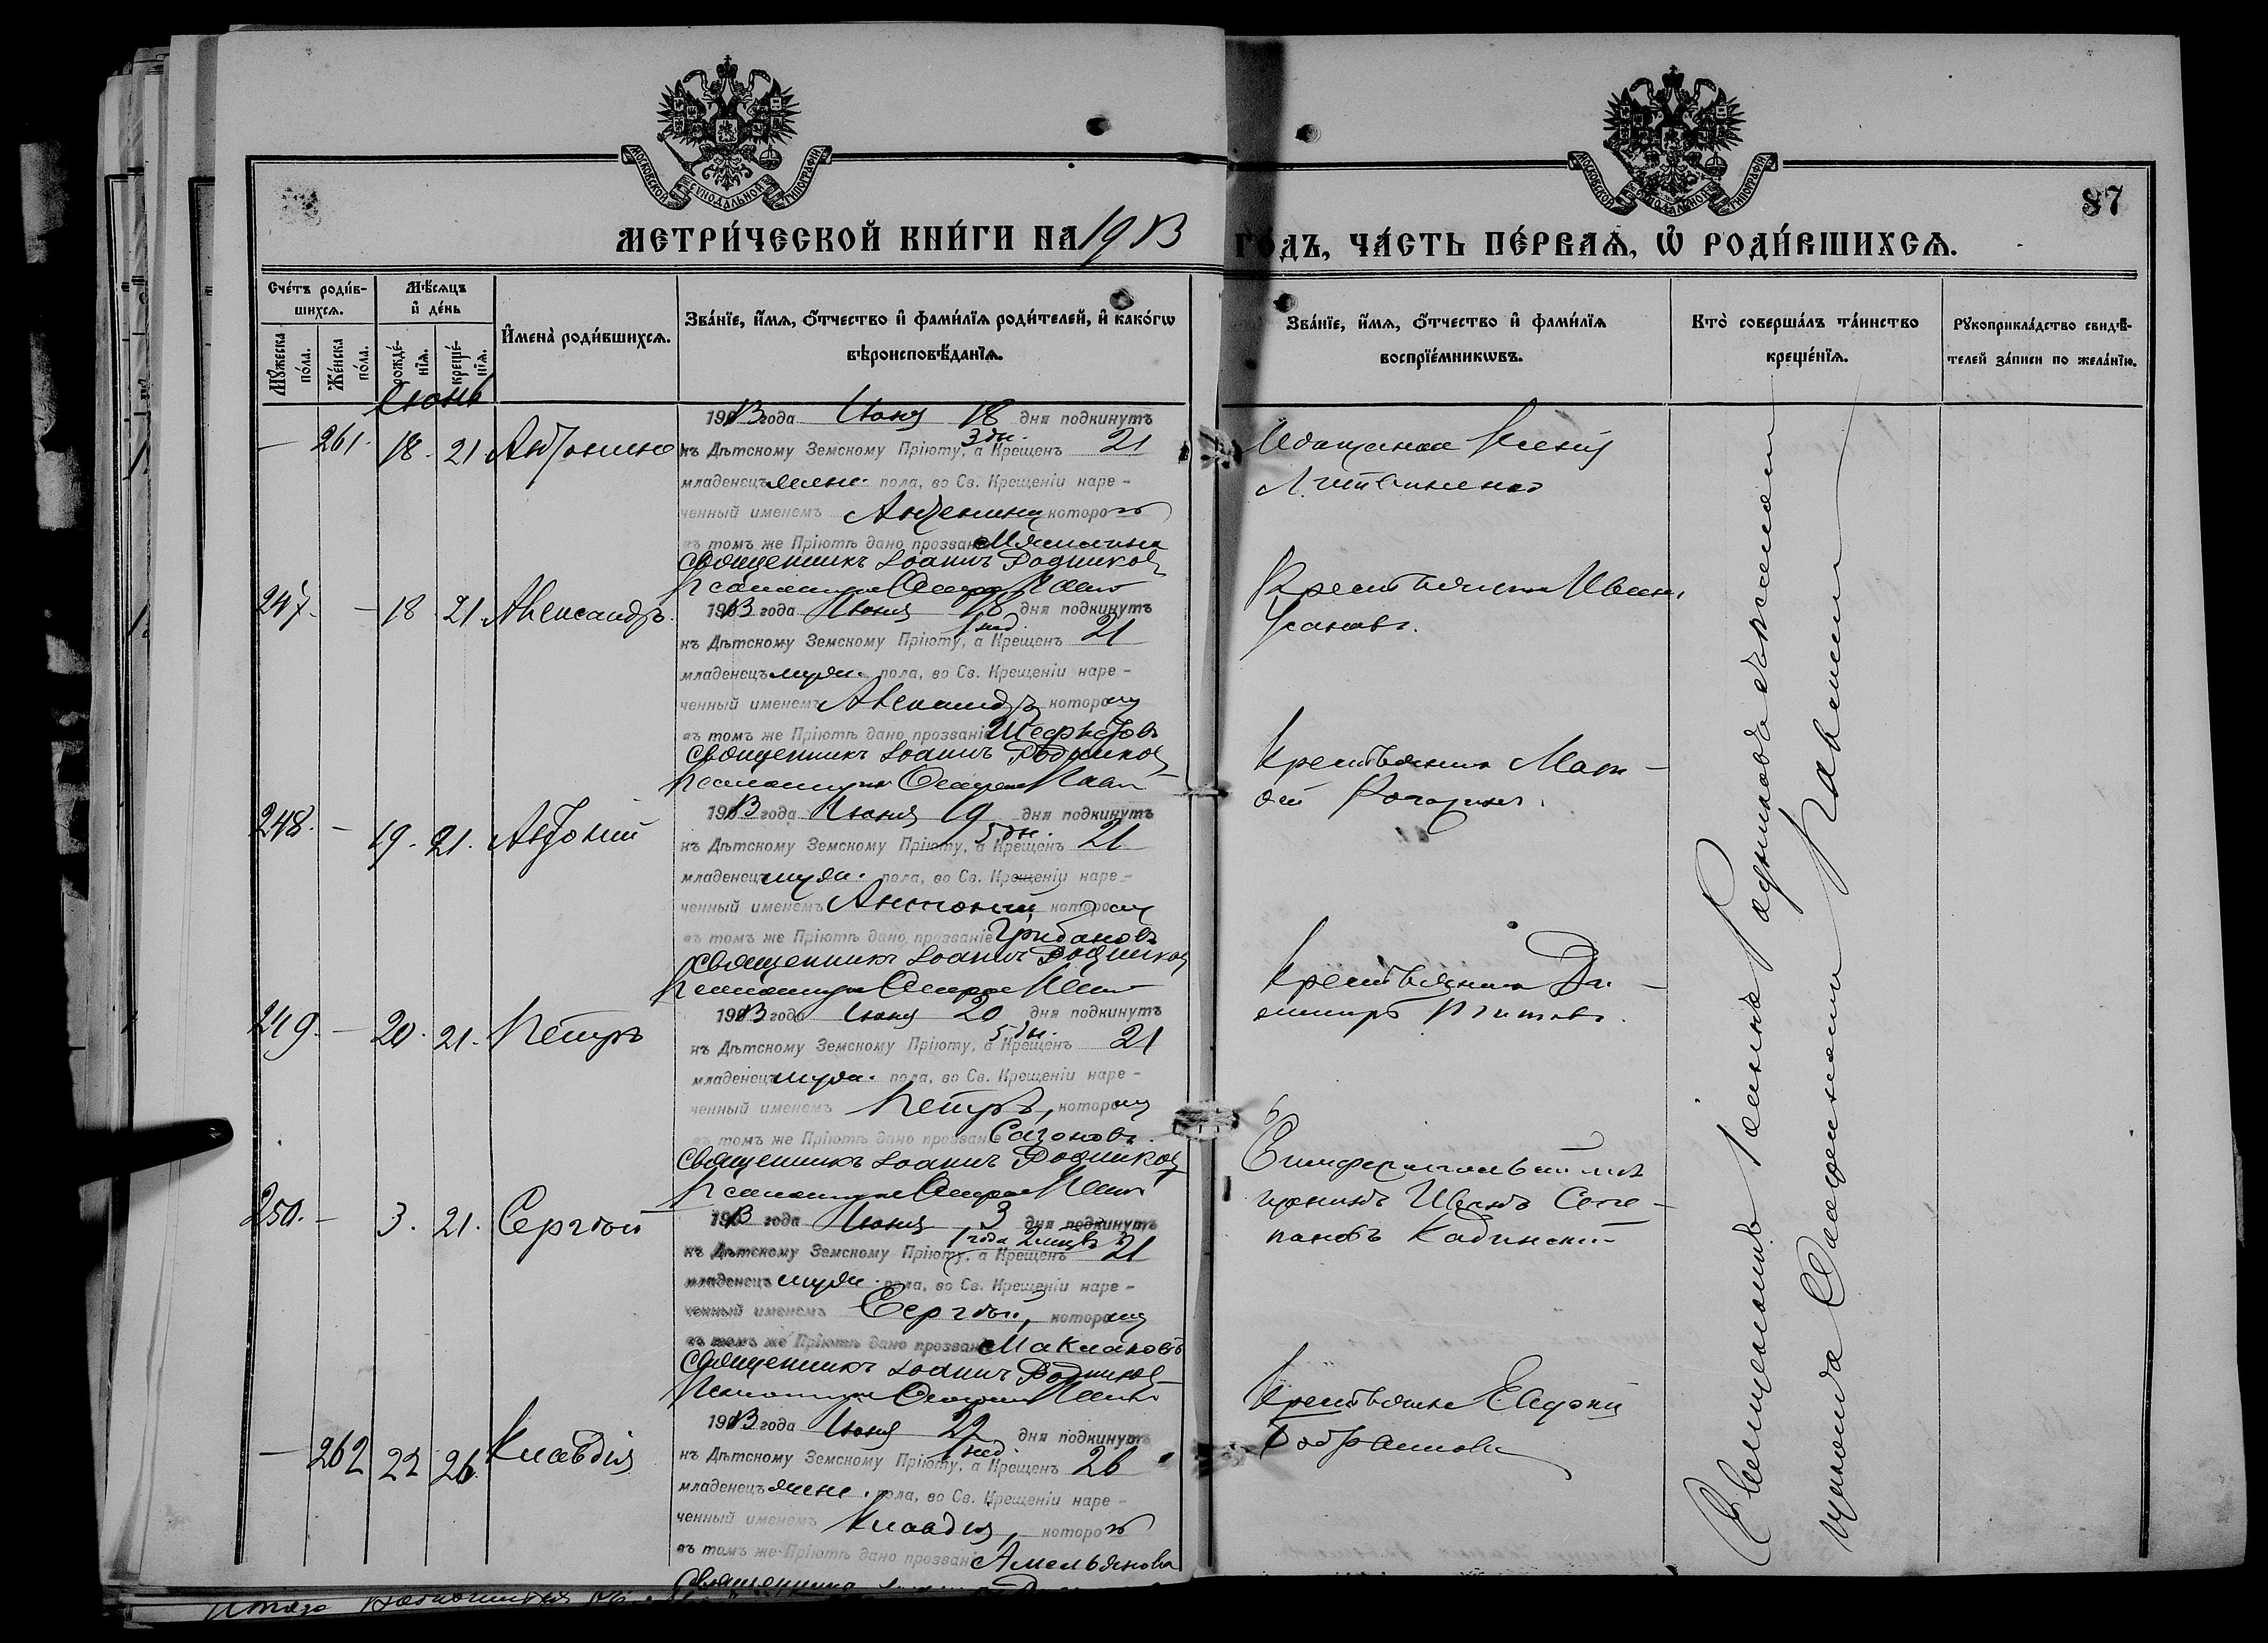 МОСКОВСКОЙ СУНОДАЛЬНОЙ ТИПОГРАФІИ
МОСКОВСКОЙ СУНОДАЛЬНОЙ ТИПОГРАФІИ
87
МЕТРИ́ЧЕСКОЙ КНИ́ГИ НА 1913 ГО́ДЪ, ЧА́СТЬ ПЕ́РВАѦ, Ѡ҆ РОДИ́ВШИХСѦ.
Сче́тъ роди́вшихсѧ.
Мꙋ́жеска по́ла.
Же́нска по́ла.
Мѣ́сѧцъ и҆ де́нь
рожде́нїѧ.
креще́нїѧ.
И҆мена̀ роди́вшихсѧ.
Зва́нїе, и҆́мѧ, ѻ҆́тчество и҆ фами́лїѧ роди́телей, и҆ како́гѡ
вѣроисповѣ́данїѧ.
Зва́нїе, и҆́мѧ, ѻ҆́тчество и҆ фами́лїѧ
воспрїе́мникѡвъ.
Кто̀ соверша́лъ та́инство
креще́нїѧ.
Рꙋкоприкла́дство свидѣ́-
телей за́писи по жела́нїю.
Іюнь
— 261. 18. 21 Антонина
1913 года Іюня 18 дня подкинутъ
3 дн.
къ Дѣтскому Земскому Пріюту, а Крещенъ 21
младенецъ женс. пола, во Св. Крещеніи наре-
ченный именемъ Антонина которой
въ томъ же Пріютѣ дано прозваніе
Священникъ Іоаннъ Родниковъ
Псаломщикъ
Мѣщанка Ксенія
Литвиненко
247. — 18. 21. Александръ.
1913 года Іюня 18 дня подкинутъ
1 нед.
къ Дѣтскому Земскому Пріюту, а Крещенъ 21
младенецъ муж. пола, во Св. Крещеніи наре-
ченный именемъ Александръ которому
въ томъ же Пріютѣ дано прозваніе
Священникъ Іоаннъ Родниковъ
Псаломщикъ
Крестьянинъ Иванъ
248. — 19. 21. Антоній
1913 года Іюня 19 дня подкинутъ
5 дн.
къ Дѣтскому Земскому Пріюту, а Крещенъ 21
младенецъ муж. пола, во Св. Крещеніи наре-
ченный именемъ Антоній которому
въ томъ же Пріютѣ дано прозваніе Грибановъ
Священникъ Іоаннъ Родниковъ
Псаломщикъ
Крестьянинъ
249. — 20. 21. Петръ
1913 года Іюня 20 дня подкинутъ
5 дн.
къ Дѣтскому Земскому Пріюту, а Крещенъ 21
младенецъ муж. пола, во Св. Крещеніи наре-
ченный именемъ Петръ, которому
въ томъ же Пріютѣ дано прозваніе Сазоновъ.
Священникъ Іоаннъ Родниковъ
Псаломщикъ
Крестьянинъ Ди-
250. — 3. 21. Сергѣй
1913 года Іюня 3 дня подкинутъ
1 года 2 мцвъ
къ Дѣтскому Земскому Пріюту, а Крещенъ 21
младенецъ муж. пола, во Св. Крещеніи наре-
ченный именемъ Сергѣй, которому
въ томъ же Пріютѣ дано прозваніе Маклаковъ
Священникъ Іоаннъ Родниковъ
Псаломщикъ
Симферопольскій мѣ
щанинъ Иванъ Сте-
пановъ Кадинскій
— 262 22 26. Клавдія
1913 года Іюня 22 дня подкинутъ
1 нед.
къ Дѣтскому Земскому Пріюту, а Крещенъ 26
младенецъ женс. пола, во Св. Крещеніи наре-
ченный именемъ Клавдія, которой
въ томъ же Пріютѣ дано прозваніе Амельянова
Священникъ
Крестьянка Евдокія
Священникъ Іоаннъ Родниковъ съ псалом
щикомъ